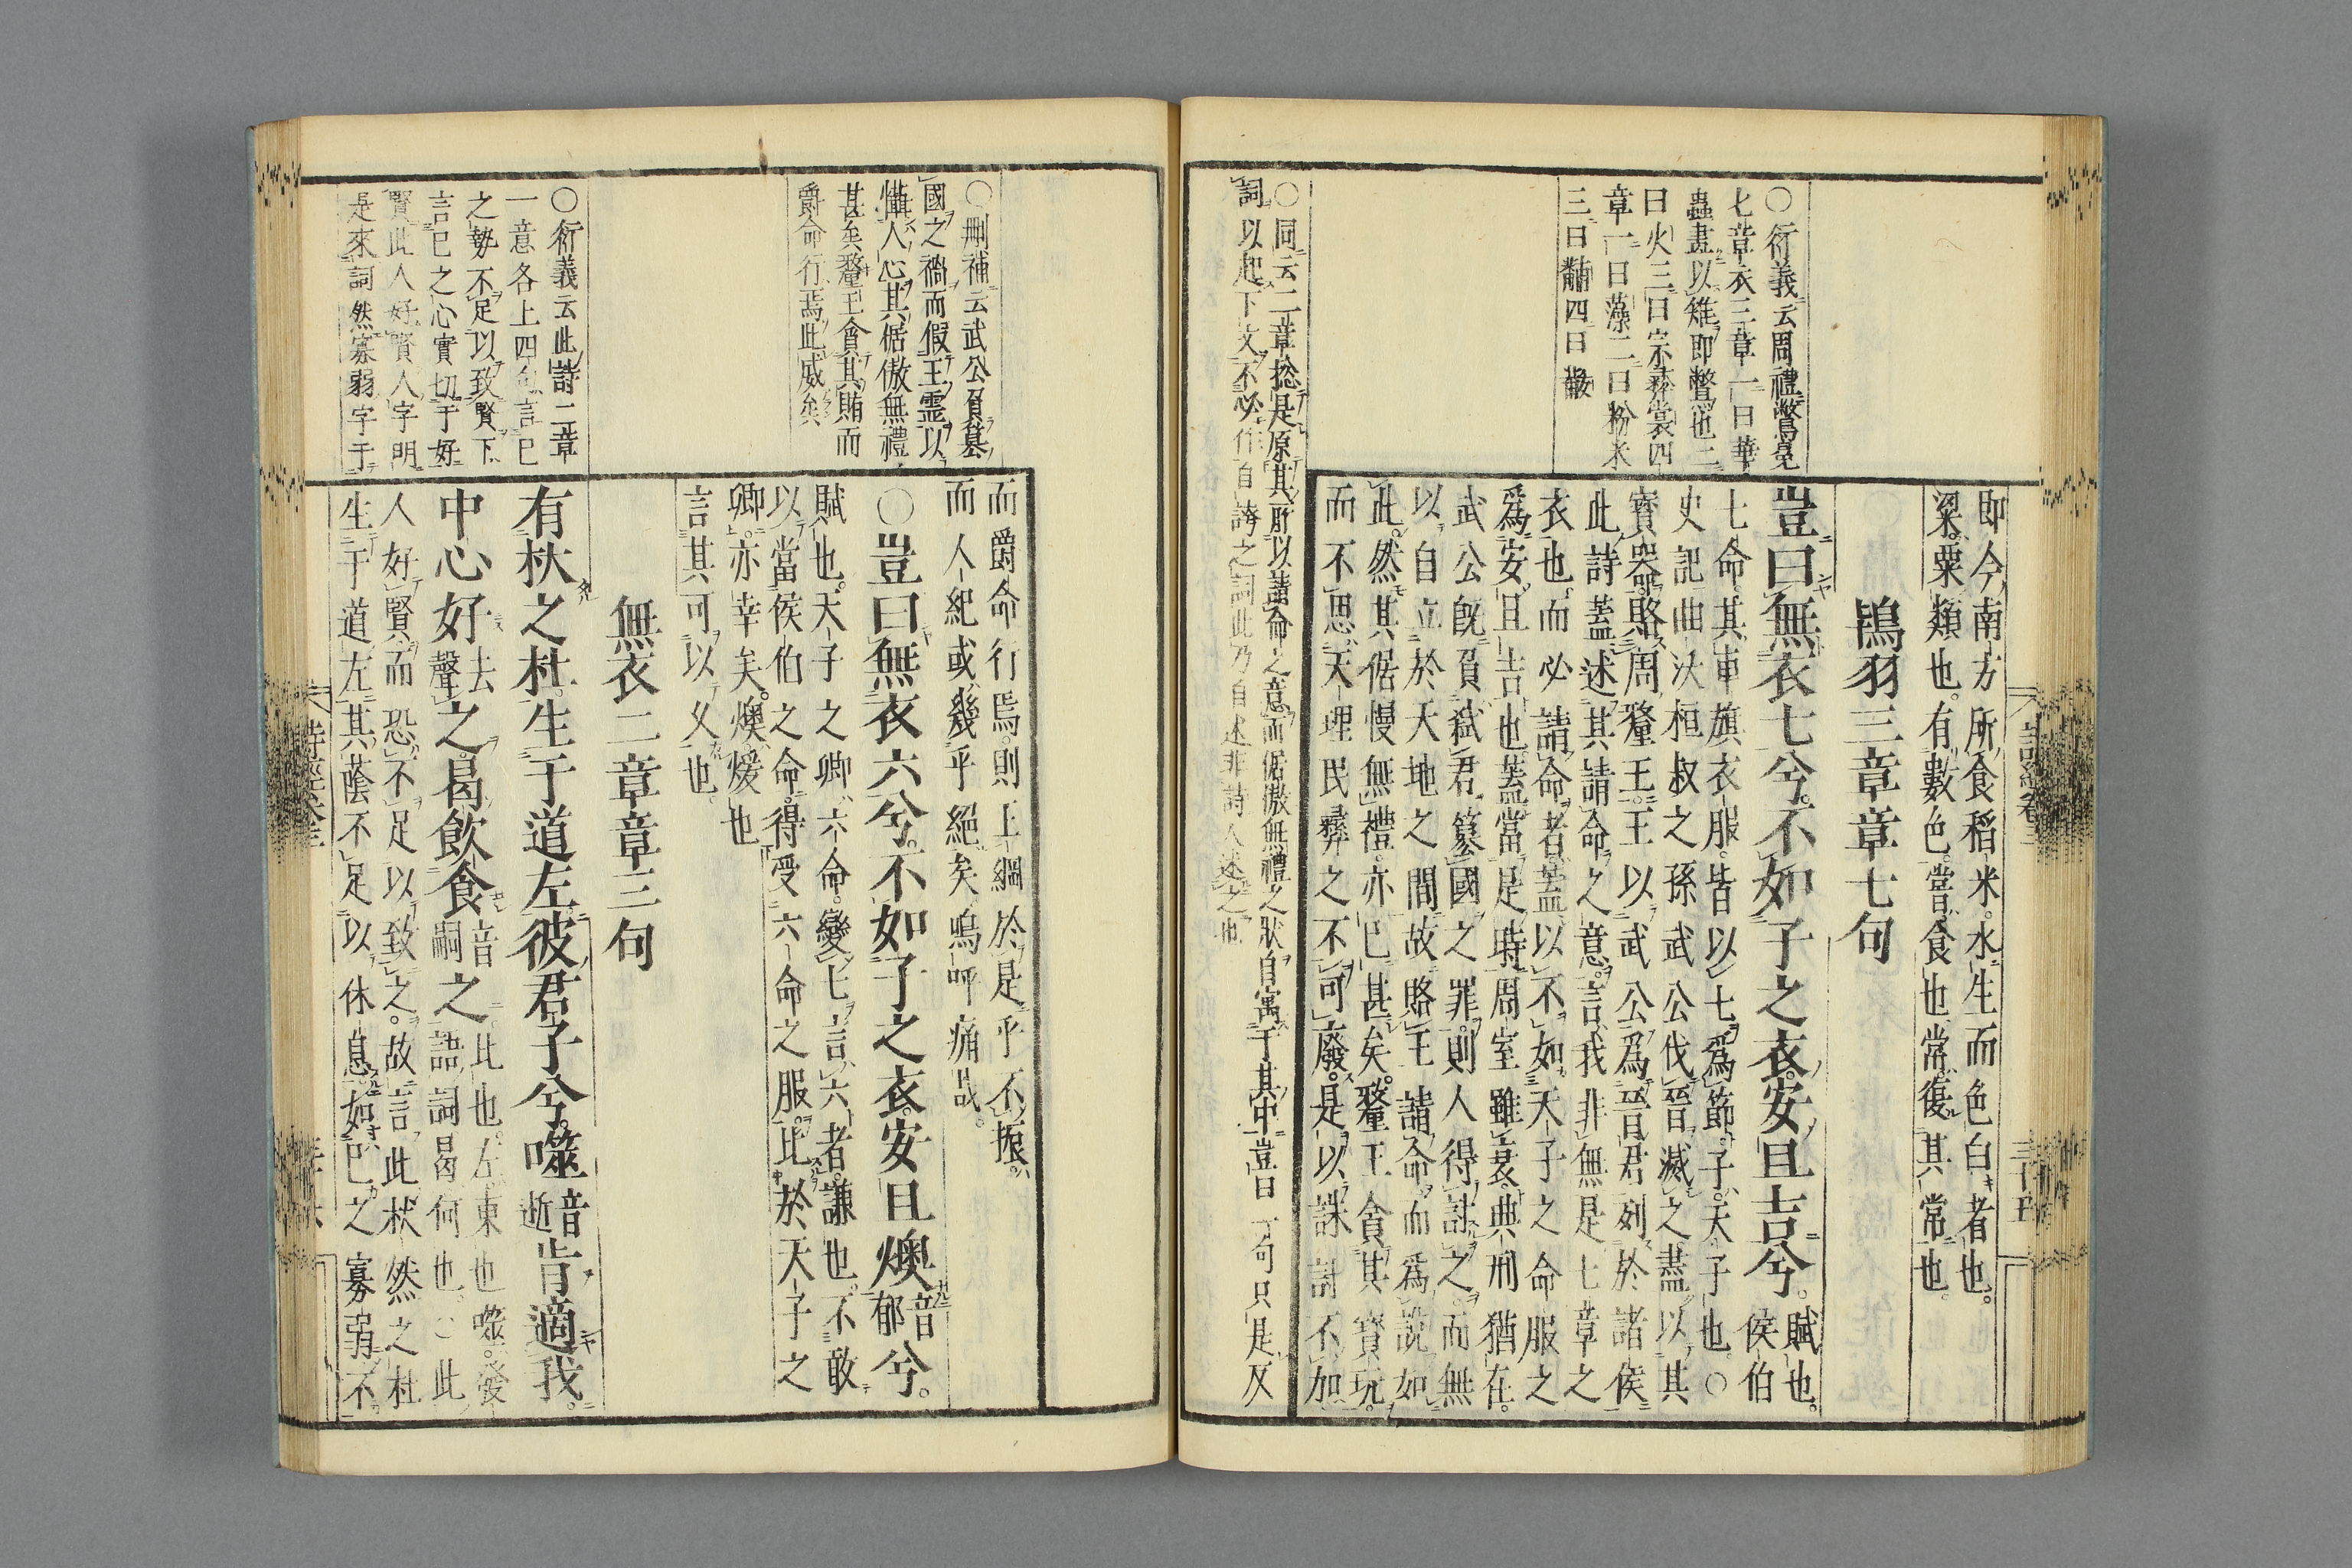 即今南方所食稻米水生而色白者也
粱粟類也有數色嘗食也常復其常也
鴇羽三章章七句
豈曰無衣七兮不如子之衣安且吉兮 賦也侯伯
七命其車旗衣服皆以七爲節子天子也○
史記曲沃桓叔之孫武公伐晉滅之盡以其
寶器賂周釐王王以武公爲晉君列於諸侯
此詩蓋述其請命之意言我非無是七章之
衣也而必請命者蓋以不如天子之命服之
爲安且吉也蓋當是時周室雖衰典刑猶在
武公旣負弑君簒國之罪則人得討之而無
以自立於天地之間故賂王請命而爲說如
此然其倨慢無禮亦已甚矣釐王貪其寶玩
而不思天理民彝之不可廢是以誅討不加
○衍義云周禮鷩冕
七章衣三章一曰華
蟲畫以雉即鷩也二
曰火三曰宗彝裳四
章一曰藻二曰粉米
三曰黼四曰黻
○同云二章捴是原其所以請命之意而倨傲無禮之狀自寓于其中豈曰一句只是反
詞以起下文不必作自誇之詞此乃自述非詩人述之也
詩經卷三
三十五
而爵命行焉則上綱於是乎不振
而人紀或幾乎絕矣嗚呼痛哉
○豈曰無衣六兮不如子之衣安且燠音郁兮
賦也天子之卿六命變七言六者謙也不敢
以當侯伯之命得受六命之服比於天子之
卿亦幸矣燠煖也
言其可以久也
無衣二章章三句
有杕之杜生于道左彼君子兮噬音逝肯適我
中心好去聲之曷飲食音嗣之 比也左東也噬發語詞曷何也○此
人好賢而恐不足以致之故言此杕然之杜
生于道左其蔭不足以休息如己之寡弱不
○刪補云武公負墓
國之禍而假王霊以
懾人心其倨傲無禮
甚矣釐王貪其賄而
爵命行焉此威矣
○衍義云此詩二章
一意各上四句言已
之勢不足以致賢下
言已之心實切于好
賢此人好賢人字明
是來詞然寡弱字于